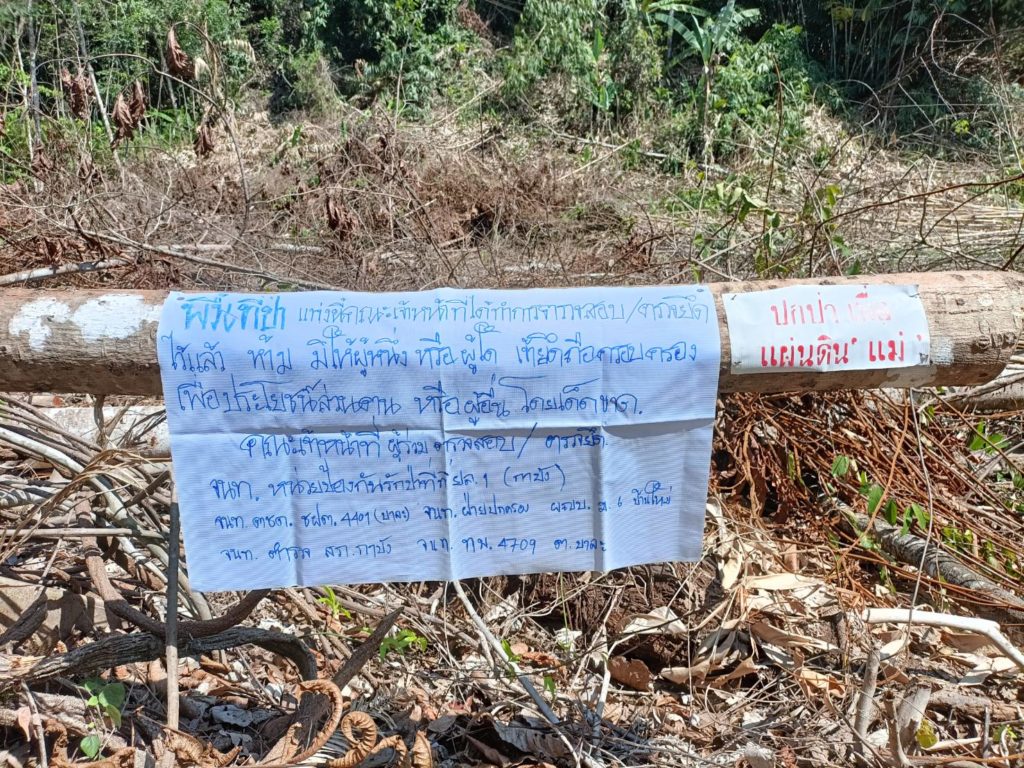 พื้นที่ป่า แห่งนี้คณะเจ้าหน้าที่ได้ทำการตรวจสอบ/ตรวจยึด
ไว้แล้ว ห้าม มิให้ผู้หนึ่ง หรือ ผู้ใด เข้ายึดถือครอบครอง
เพื่อประโยชน์ส่วนตน หรือ ผู้อื่น โดยเด็ดขาด.
คณะเจ้าหน้าที่ ผู้ร่วมตรวจสอบ/ตรวจยึด.
จนท. หน่วยป้องกันรักษาป่าที่ ยล.1 (กาบัง)
จนท. ตชด. ชฝต. 4401 (บาละ) จนท. ฝ่ายปกครอง ผรบ. ม. 6 บ้านใหม่
จนท. ตำรวจ สภ.กาบัง จนท. ทพ. 4709 ต. บาละ
ปกป่า เพื่อ
แผ่นดิน แม่